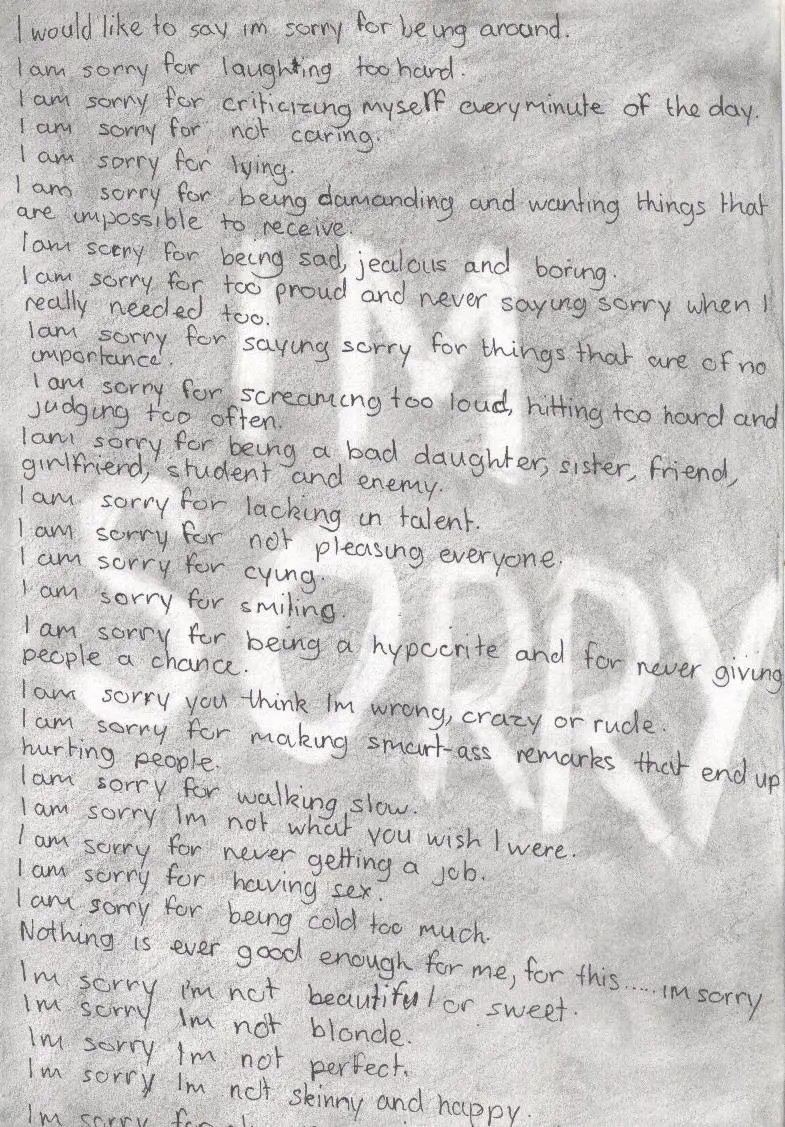 I would like to say im sorry for being around.
I am sorry for laughting too hard.
I am sorry for criticizing myself every minute of the day.
I am sorry for not caring.
I am sorry for lying.
I am sorry for being damanding and wanting things that
are impossible to receive.
I am sorry for being sad, jealous and boring.
I am sorry for too proud and never saying sorry when I
really needed too.
I am sorry for saying sorry for things that are of no
importance.
I am sorry for screaming too loud, hitting too hard and
judging too often.
I am sorry for being a bad daughter, sister, friend,
girlfriend, student and enemy.
I am sorry for lacking in talent.
I am sorry for not pleasing everyone.
I am sorry for cying.
I am sorry for smiling.
I am sorry for being a hypocrite and for never giving
people a chance.
I am sorry you think Im wrong, crazy or rude.
I am sorry for making smart-ass remarks that end up
hurting people.
I am sorry for walking slow.
I am sorry Im not what you wish I were.
I am sorry for never getting a job.
I am sorry for having sex.
I am sorry for being cold too much.
Nothing is ever good enough for me, for this ..... im sorry
Im sorry i'm not beautiful or sweet.
Im sorry Im not blonde.
Im sorry Im not perfect.
Im sorry Im not skinny and happy.
Im sorry
I'M
SORRY